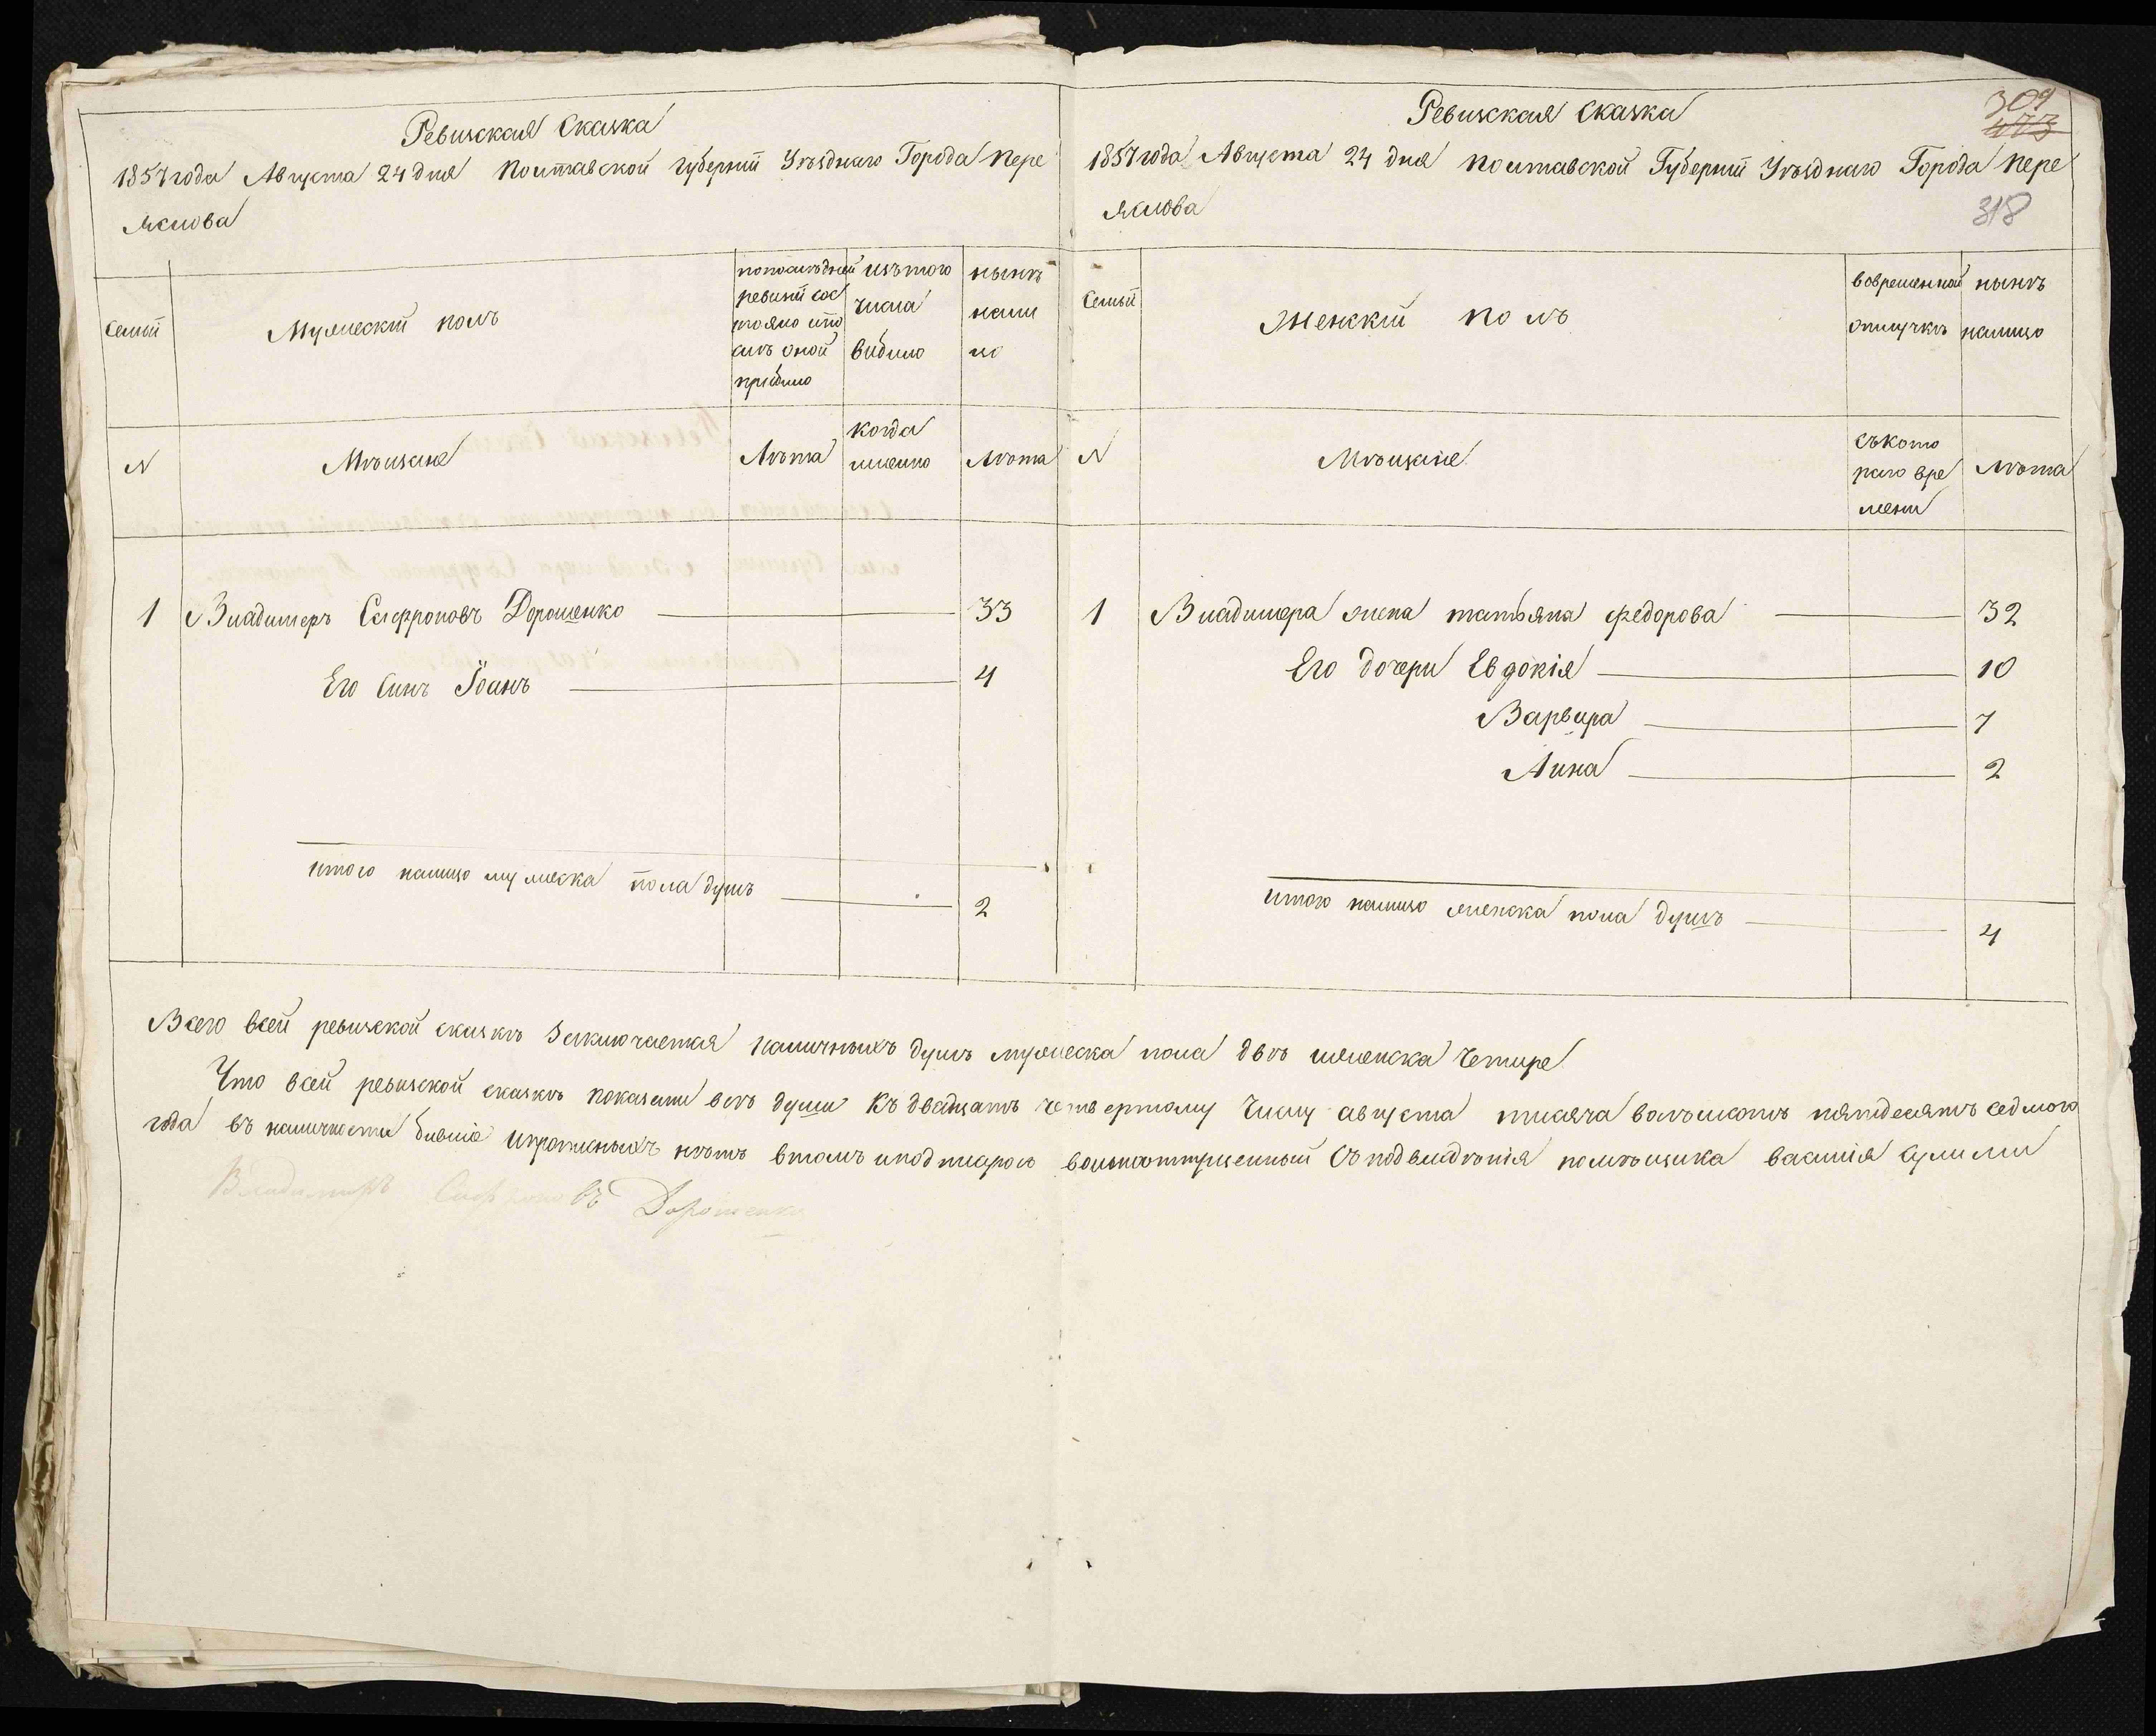 Ревизская Сказка
1857 года Августа 24 дня Полтавской Губернии Уѣзднаго Города Пере
яслова
Семьи
Мужескій полъ
попослѣдней
ревизіи сос
тояло ипо
слѣ оной
прибыло
изътого
числа
выбило
нынѣ
нали
цо
N
Мѣщане
Лѣта
когда
именно
Лѣта
1 Владимеръ Сафроновъ Дорошенко 33
Его Синъ Іоанъ 4
итого налицо мужеска пола душъ 2
Ревизская Сказка
309
473
1857 года Августа 24 дня Полтавской Губернии Уѣзднаго Города Пере
яслова
318
Семьи
Женскій полъ
вовременной
отлучкѣ
нынѣ
налицо
N
Мѣщане
съкото
раго вре
мени
Лѣта
1 Владимера жена татьяна федорова 32
Его дочери Евдокія 10
Варвара 7
Анна 2
итого налицо женска пола душъ 4
Всего всей ревизской сказкѣ Заключается наличныхъ душъ мужеска пола двѣ иженска Четире
Что всей ревизской сказкѣ показани всѣ души Къ двадцать четвертому Числу августа тисяча восѣмсотъ пятдесятъ седмого
года въ наличности бывшіе ипрописныхъ нѣтъ втомъ иподписуюсь вольноотпущенный Съ подвладѣнія помѣщика василія Сулими
Владимеръ Сафроновъ Дорошенко